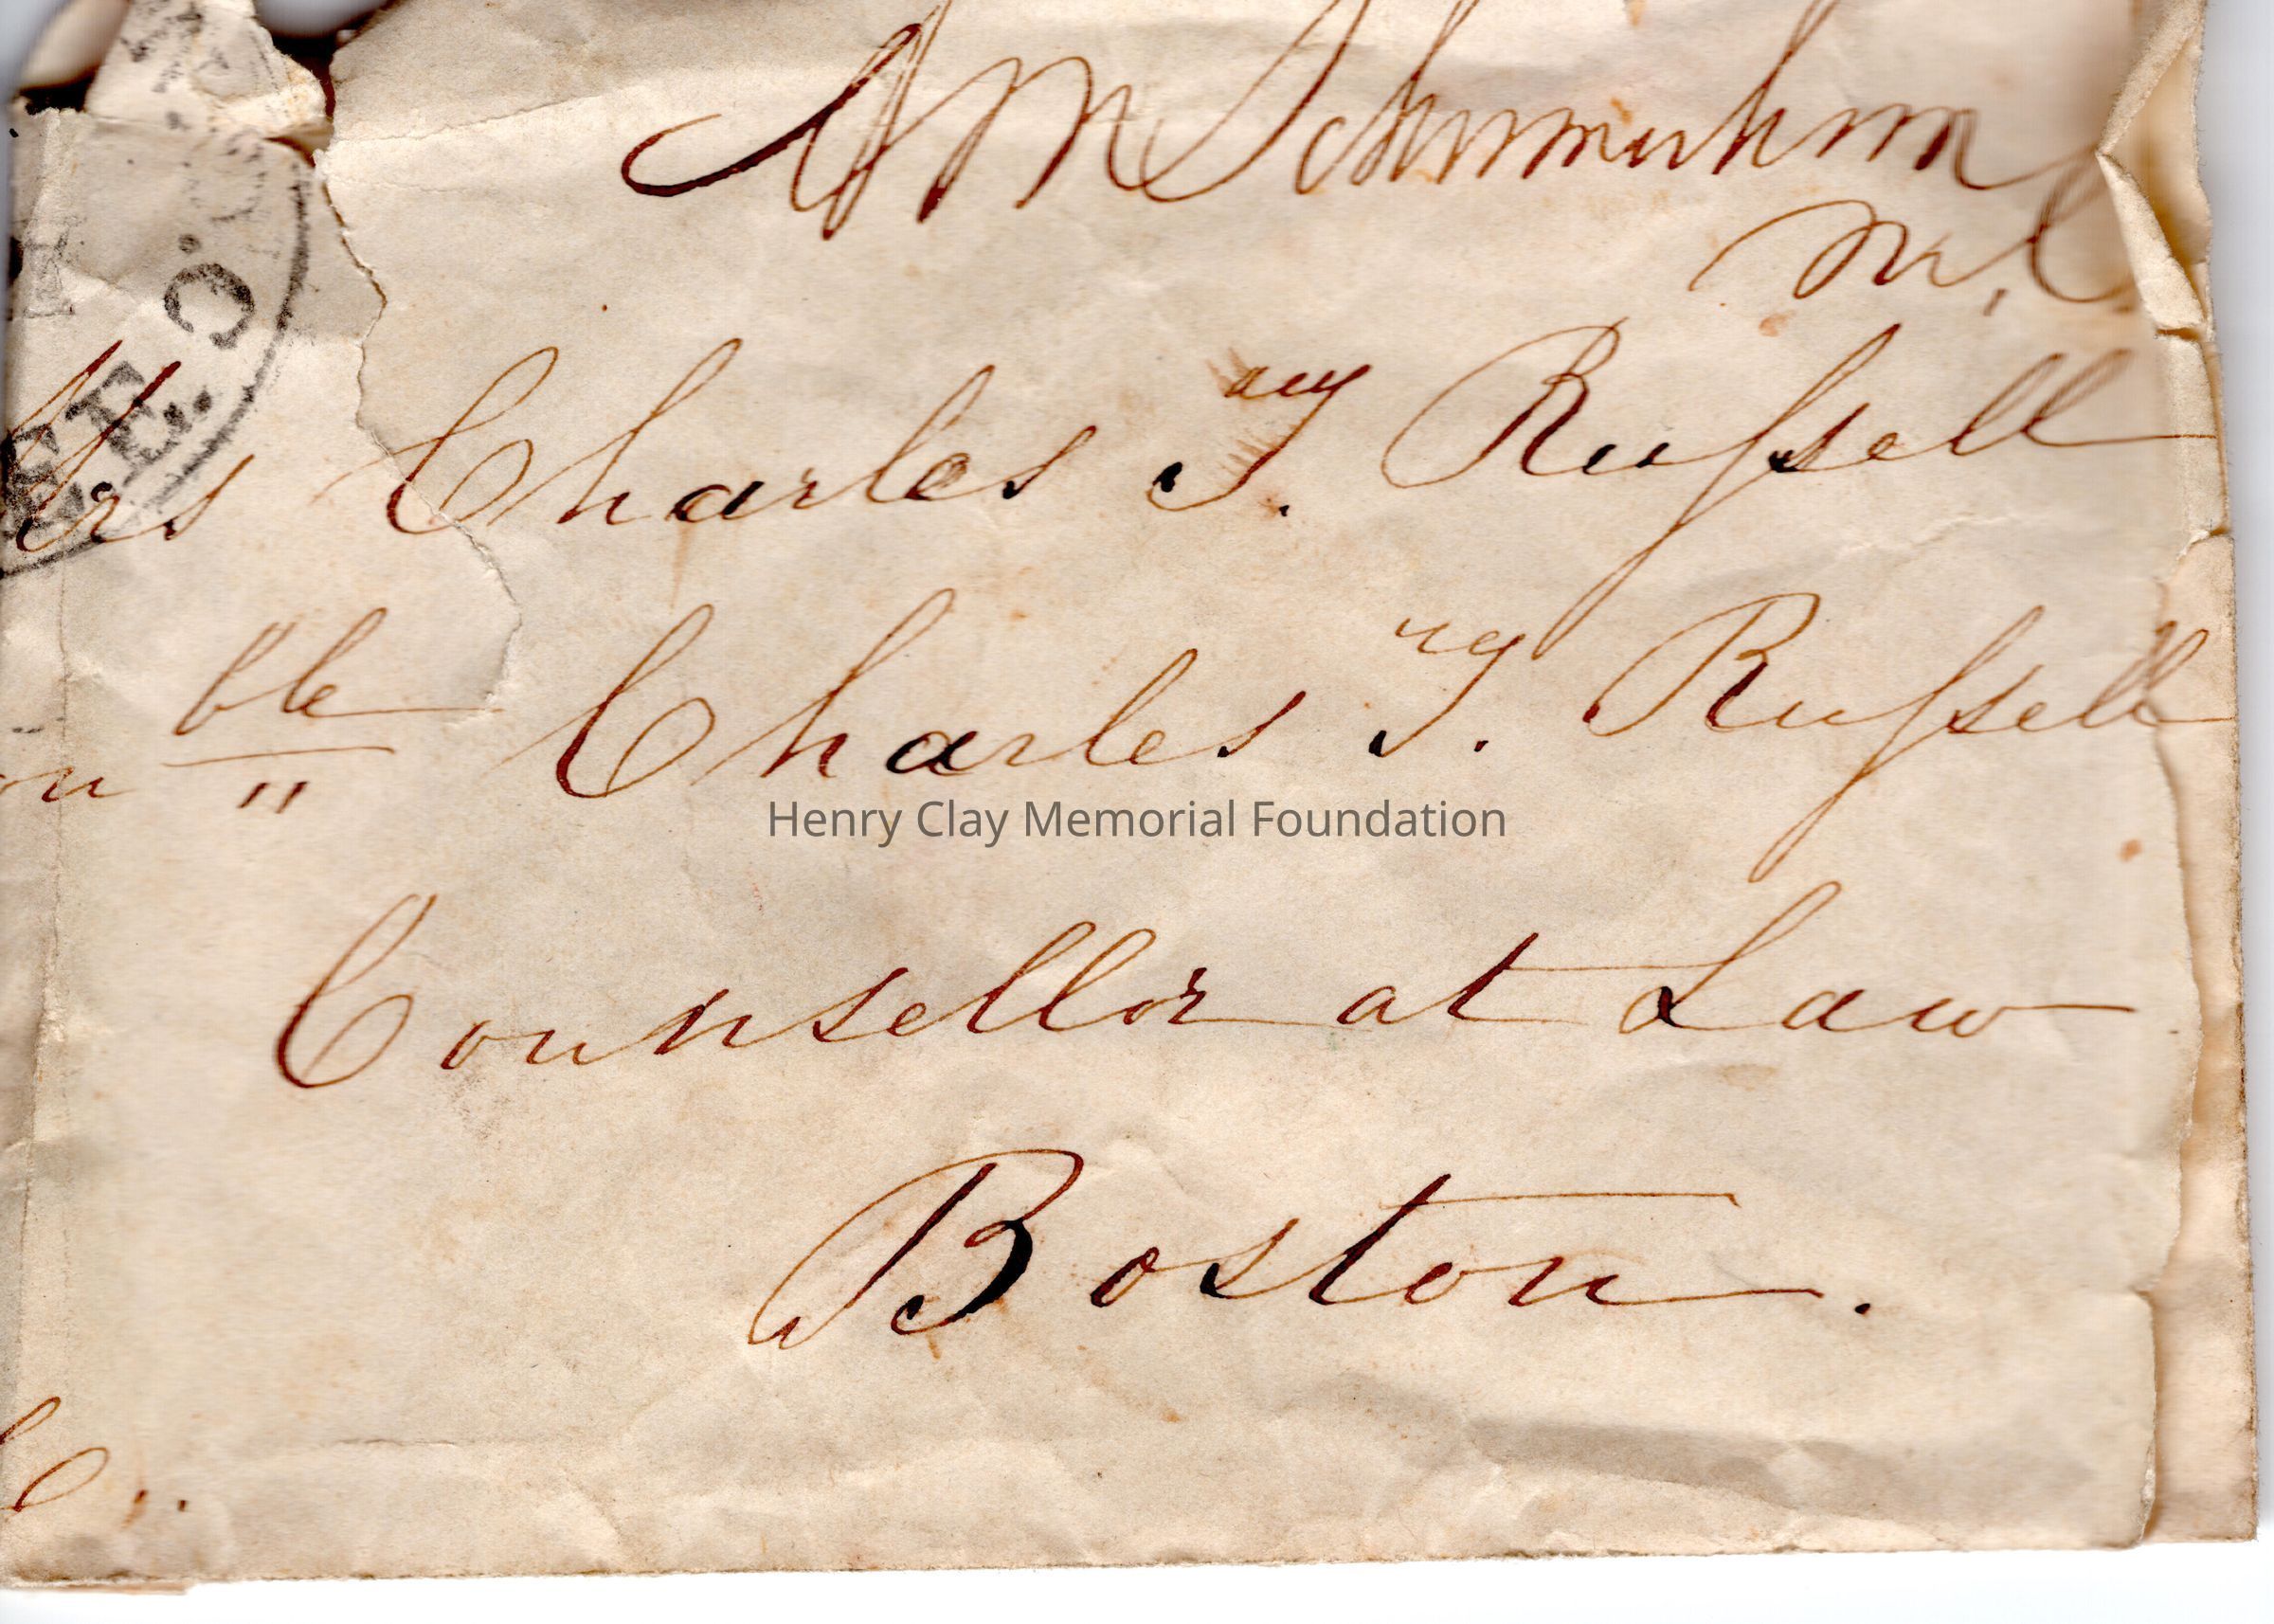 A M Schermerhorn
M.C
Mrs Charles T. Russell
on ble Charles T. Russell
Counsellor at Law
Boston.
Henry Clay Memorial Foundation